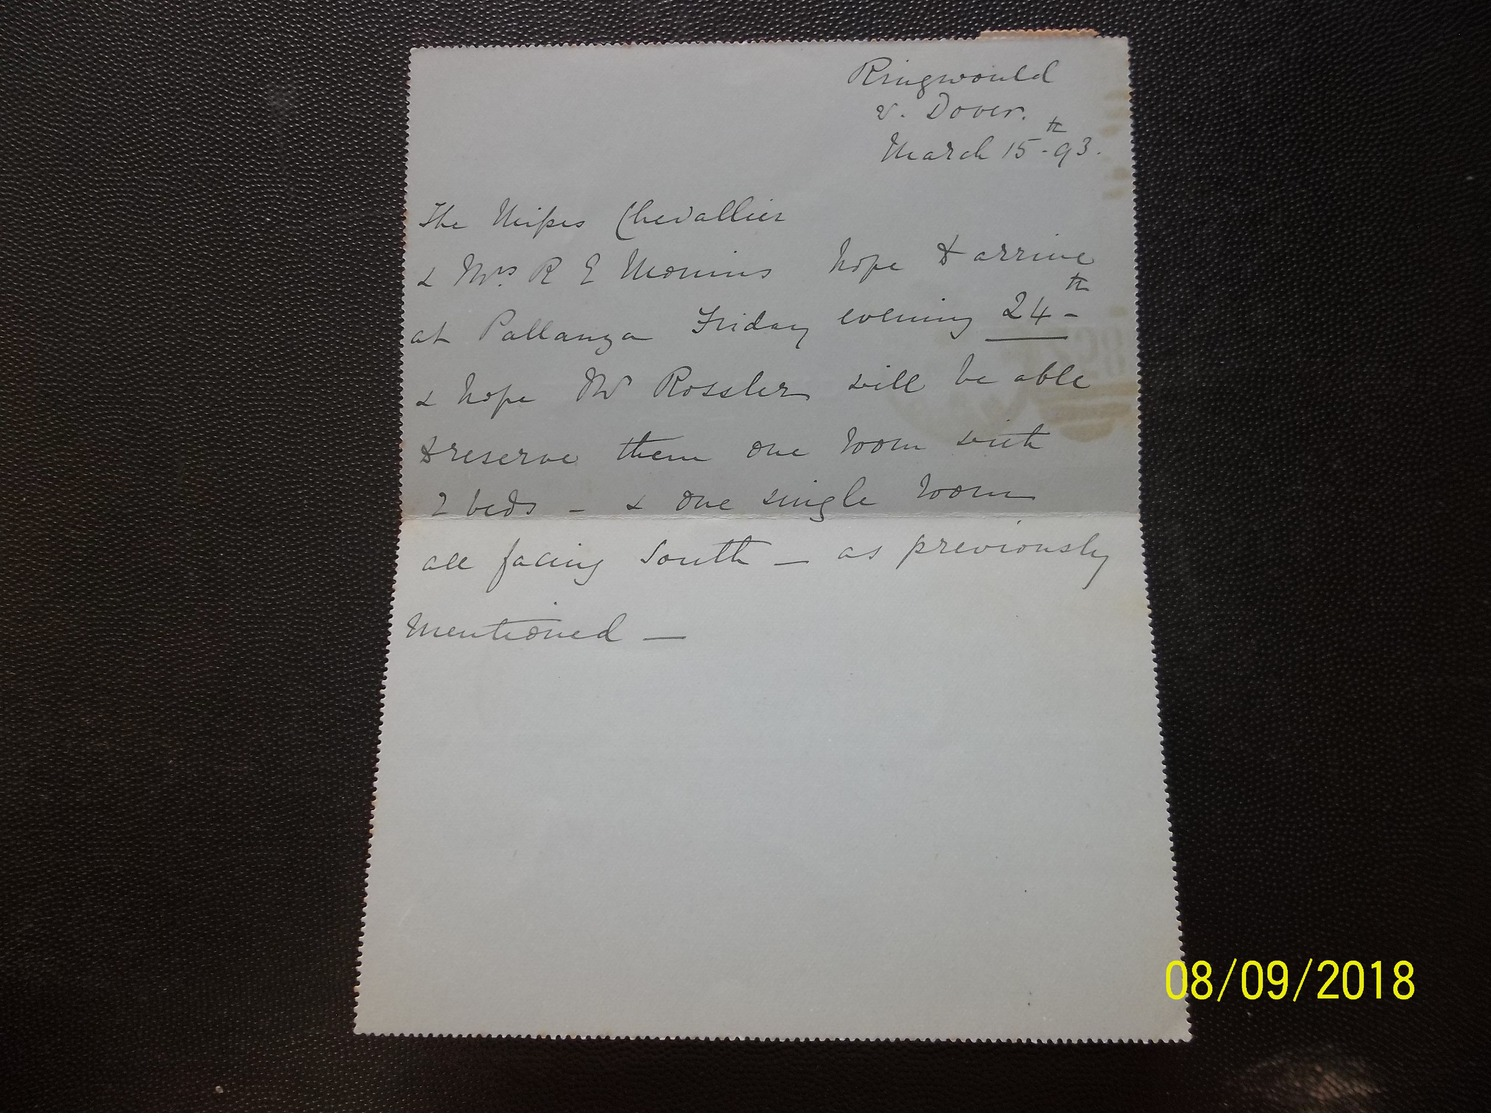 Ringwould
nr. Dover.
March 15th - 93.
The Misses Chevallier
& Mrs. R E Monins hope to arrive
at Pallanza Friday evening 24th -
& hope Mr Rossler will be able
to reserve them one room with
2 beds - & one single room
all facing South - as previously
mentioned -
08/09/2018